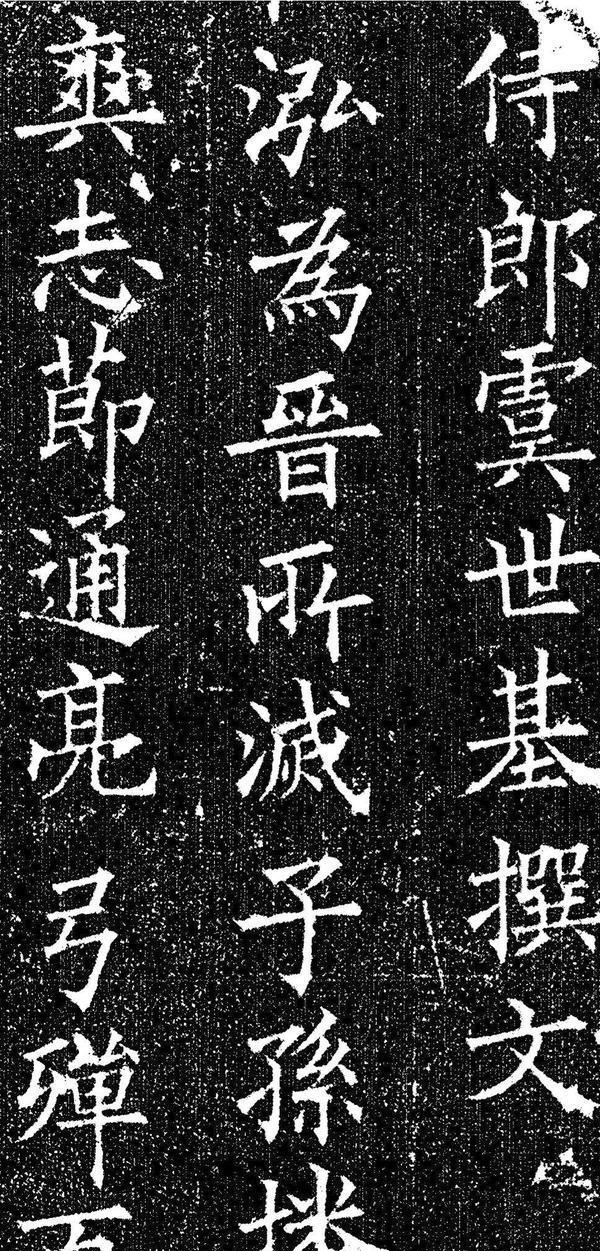 侍郎虞世基撰文
泓為晉所滅子孫播
爽志節通亮弓殫百